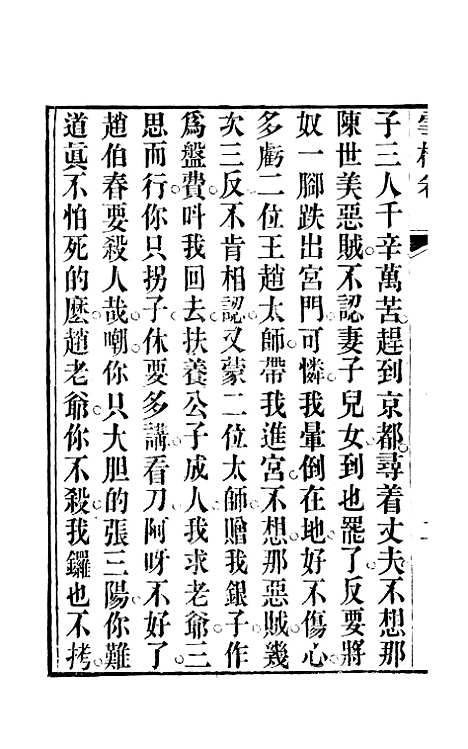 子三人千辛萬苦。趕到京都。尋着丈夫。不想那
陳世美惡賊。不認妻子兒女到也罷了。反要將
奴一腳跌出宮門。可憐我暈倒在地。好不傷心。
多虧二位王趙太師。帶我進宮。不想那惡賊幾
次三反不肯相認。又蒙二位太師贈我銀子作
爲盤費。呌我回去。扶養公子成人。我求老爺三
思而行。你只拐子休要多講。看刀。阿呀不好了。
趙伯春要殺人哉。嘲。你只大胆的張三陽。你難
道眞不怕死的麽。趙老爺。你不殺我。鑼也不拷